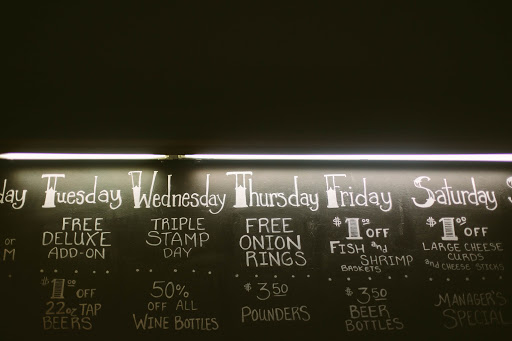 day Tuesday Wednesday Thursday Friday Saturday S
FREE DELUXE ADD-ON
TRIPLE STAMP DAY
FREE ONION RINGS
$1.00 OFF FISH and SHRIMP BASKETS
$1.00 OFF LARGE CHEESE CURDS and CHEESE STICKS
or
M
$1.00 OFF 22oz TAP BEERS
50% OFF ALL WINE BOTTLES
$3.50 POUNDERS
$3.50 BEER BOTTLES
MANAGER'S SPECIAL